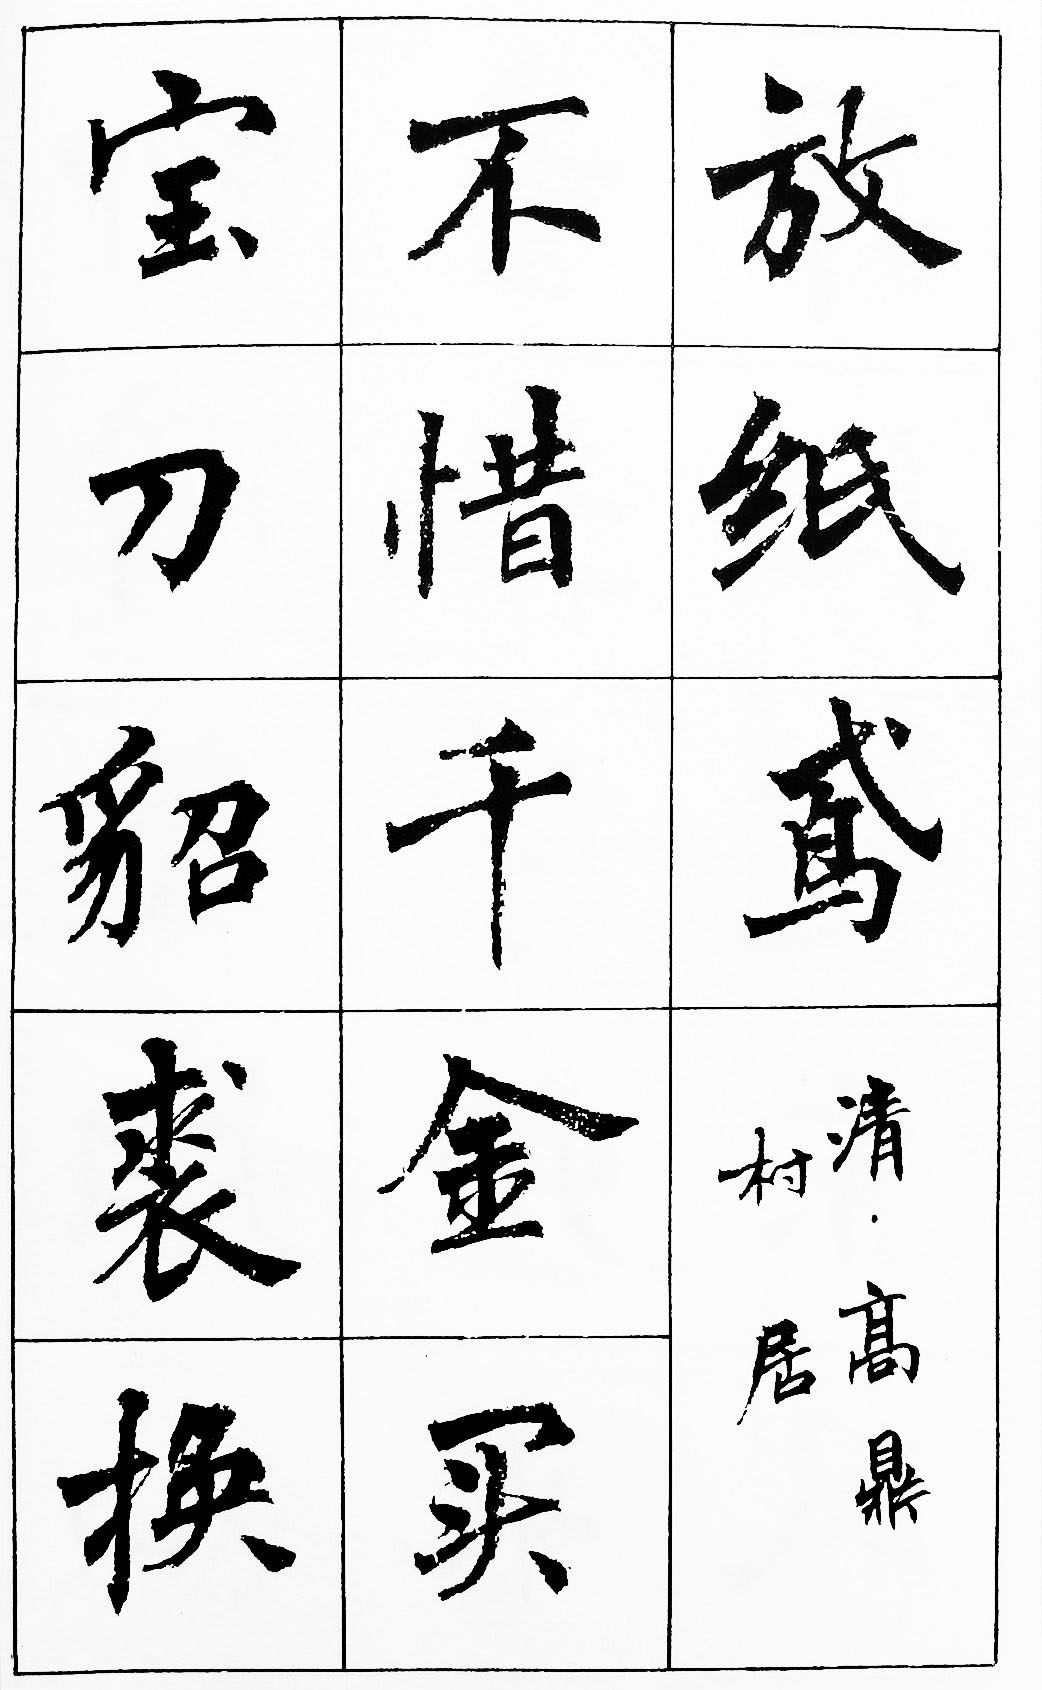 放纸鸢
清·高鼎
村居
不惜千金买
宝刀貂裘换